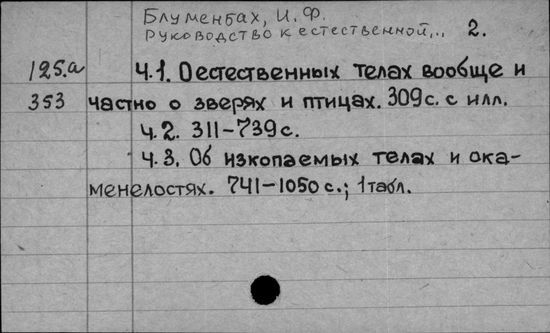 Блуменбах, И. Ф.
Руководство к естественной... 2.
125.а Ч.1. О естественных телах вообще и
353 частно о зверях и птицах. 309с. с илл.
Ч.2. 311-739с.
Ч.3. Об изкопаемых телах и ока-
менелостях. 741-1050с.; 1табл.